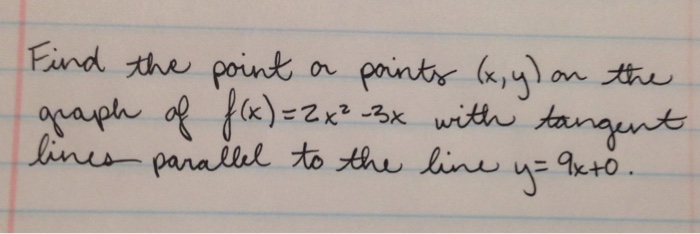 Find the point or points (x,y) on the
graph of f(x)=2x²-3x with tangent
lines parallel to the line y=9x+0.